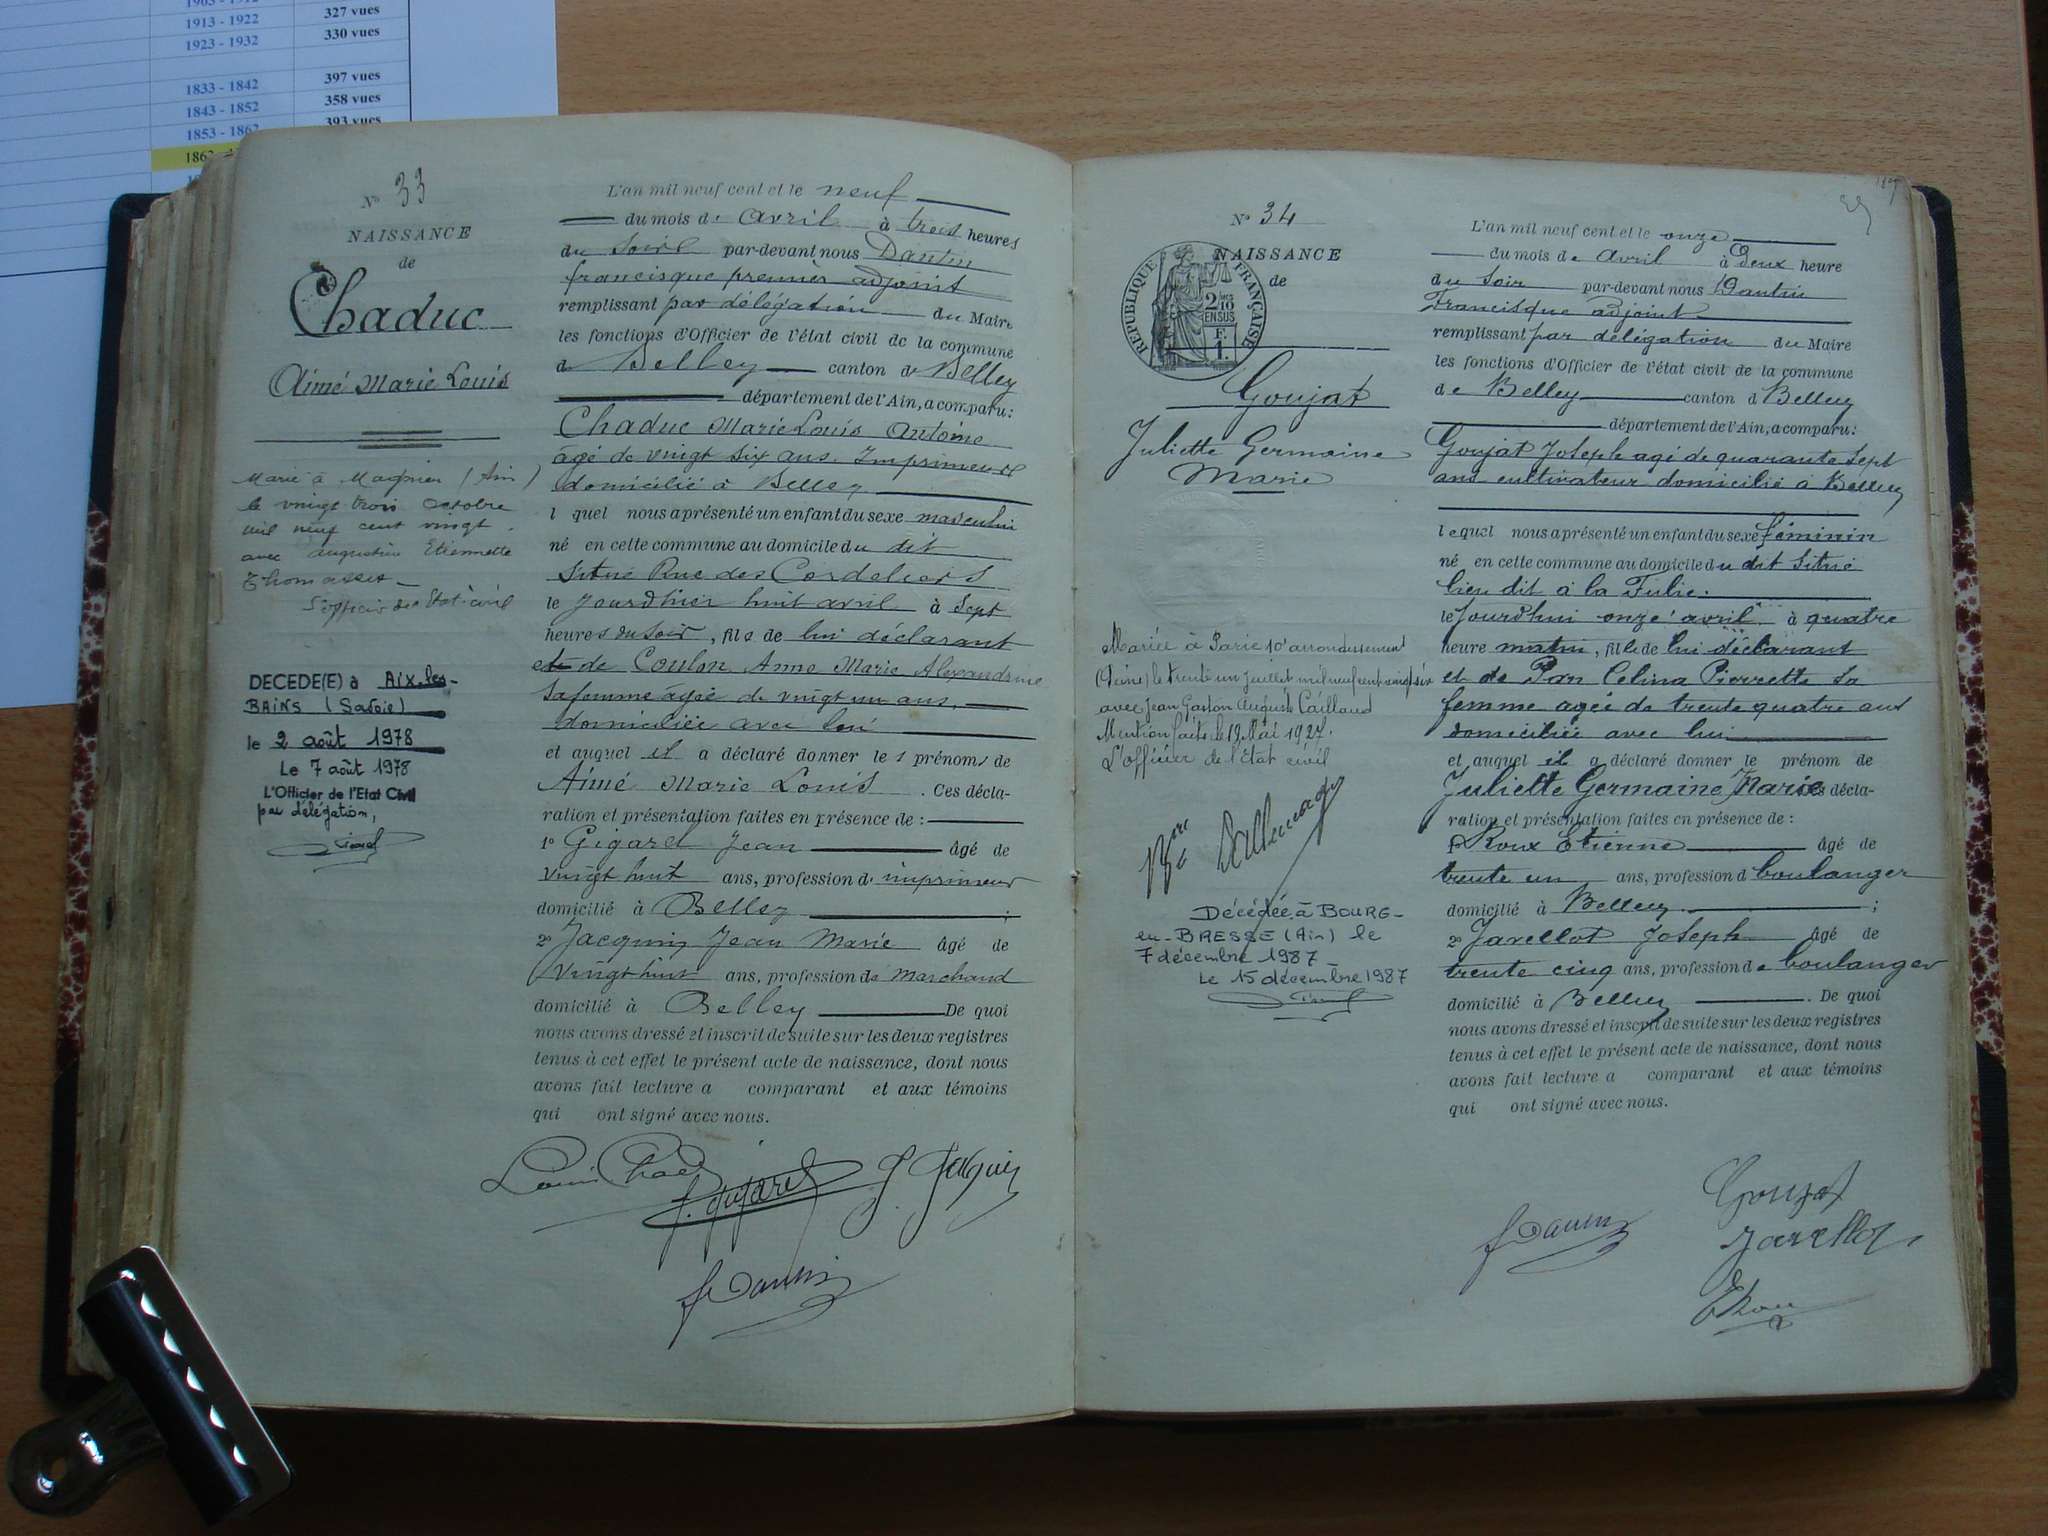 1913 - 1922 327 vues
1923 - 1932 330 vues
1833 - 1842 397 vues
1843 - 1852 358 vues
1853 - 1862 393 vues
N° 33
NAISSANCE
de
Chaduc
Aimé Marie Louis
Marié à Magnieu (Ain)
le vingt trois octobre
mil neuf cent vingt
avec Augustine Etiennette
Thomasset
L'officier de l'Etat-civil
DECEDE(E) à Aix-les-
BAINS (Savoie)
le 2 août 1978
Le 7 août 1978
L'Officier de l'Etat Civil
par délégation,
L'an mil neuf cent et le neuf
du mois de avril à trois heures
du soir par-devant nous Dantin
francisque premier adjoint
remplissant par délégation du Maire
les fonctions d'Officier de l'état civil de la commune
de Belley canton de Belley
département de l'Ain, a comparu:
Chaduc Marie Louis Antoine
agé de vingt six ans. Imprimeur
domicilié à Belley
l quel nous a présenté un enfant du sexe masculin
né en cette commune au domicile du dit
situé Rue des Cordeliers
le jour d'hier huit avril à sept
heures du soir, fils de lui déclarant
et de Coulon Anne Marie Alexandrine
sa femme agée de vingt un ans,
domiciliée avec lui
et auquel il a déclaré donner les prénoms de
Aimé Marie Louis. Ces décla-
ration et présentation faites en présence de :
1° Gigarel Jean âgé de
vingt huit ans, profession d'imprimeur
domicilié à Belley ;
2° Jacquin Jean Marie âgé de
vingt huit ans, profession de marchand
domicilié à Belley De quoi
nous avons dressé et inscrit de suite sur les deux registres
tenus à cet effet le présent acte de naissance, dont nous
avons fait lecture a comparant et aux témoins
qui ont signé avec nous.
Louis Chaduc
J. Gigarel J. Jacquin
F Dantin
N° 34
NAISSANCE
de
REPUBLIQUE FRANÇAISE
2/10
EN SUS
F.
1.
Goujat
Juliette Germaine
Marie
Mariée à Paris 10e arrondissement
(Seine) le trente un juillet mil neuf cent vingt six
avec Jean Gaston Auguste Caillaud
Mention faite le 19 Mai 1927.
L'officier de l'Etat civil
Décédée à BOURG-
en-BRESSE (Ain) le
7 décembre 1987
Le 15 décembre 1987
L'an mil neuf cent et le onze
du mois de avril à deux heure
du soir par-devant nous Dantin
Francisque adjoint
remplissant par délégation du Maire
les fonctions d'Officier de l'état civil de la commune
de Belley canton d Belley
département de l'Ain, a comparu:
Goujat Joseph agé de quarante sept
ans cultivateur domicilié à Belley
lequel nous a présenté un enfant du sexe féminin
né en cette commune au domicile du dit situé
lieu dit à la
le jourd'hui onze avril à quatre
heure matin, fille de lui déclarant
et de Pan Celina Pierrette sa
femme agée de trente quatre ans
domiciliée avec lui
et auquel il a déclaré donner le prénom de
Juliette Germaine Marie Ces décla-
ration et présentation faites en présence de :
1° Roux Etienne âgé de
trente un ans, profession d boulanger
domicilié à Belley ;
2° Javellot Joseph âgé de
trente cinq ans, profession de boulanger
domicilié à Belley. De quoi
nous avons dressé et inscrit de suite sur les deux registres
tenus à cet effet le présent acte de naissance, dont nous
avons fait lecture a comparant et aux témoins
qui ont signé avec nous.
Goujat
F Dantin Javellot
E Roux